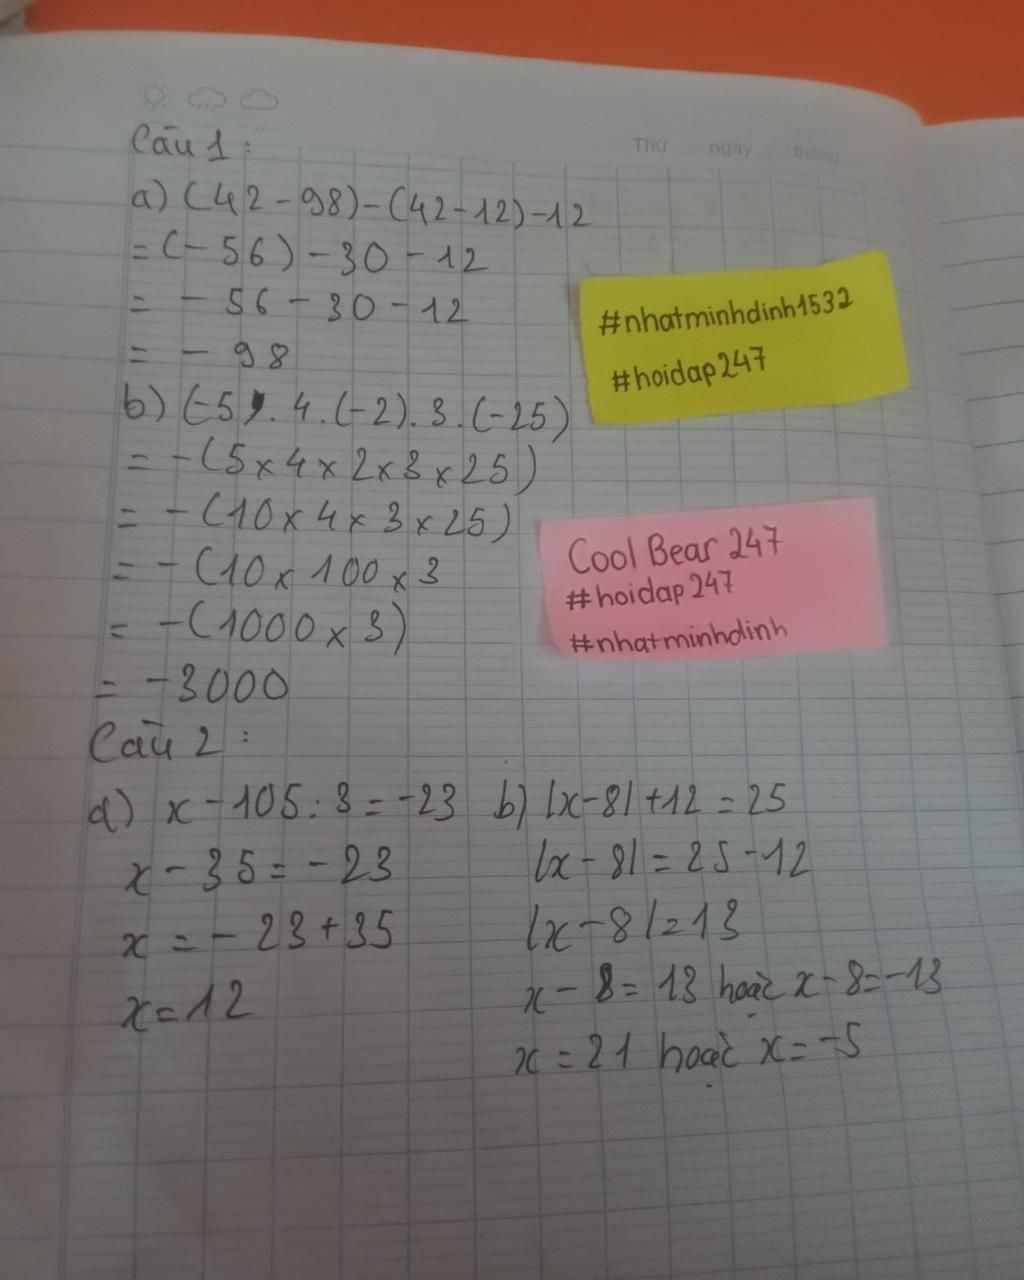 Thứ ngày tháng
Câu 1:
a) (42-98)-(42-12)-12
=(-56)-30-12
= -56-30-12
= -98
b) (-5). 4.(-2).3.(-25)
= -(5x4x2x3x25)
= -(10x4x3x25)
= -(10x100x3
= -(1000x3)
= -3000
#nhatminhdinh1532
#hoidap247
Cool Bear 247
#hoidap247
#nhatminhdinh
Câu 2:
a) x-105:3=-23
x-35=-23
x=-23+35
x=12
b) |x-8|+12=25
|x-8|=25-12
|x-8|=13
x-8=13 hoặc x-8=-13
x=21 hoặc x=-5